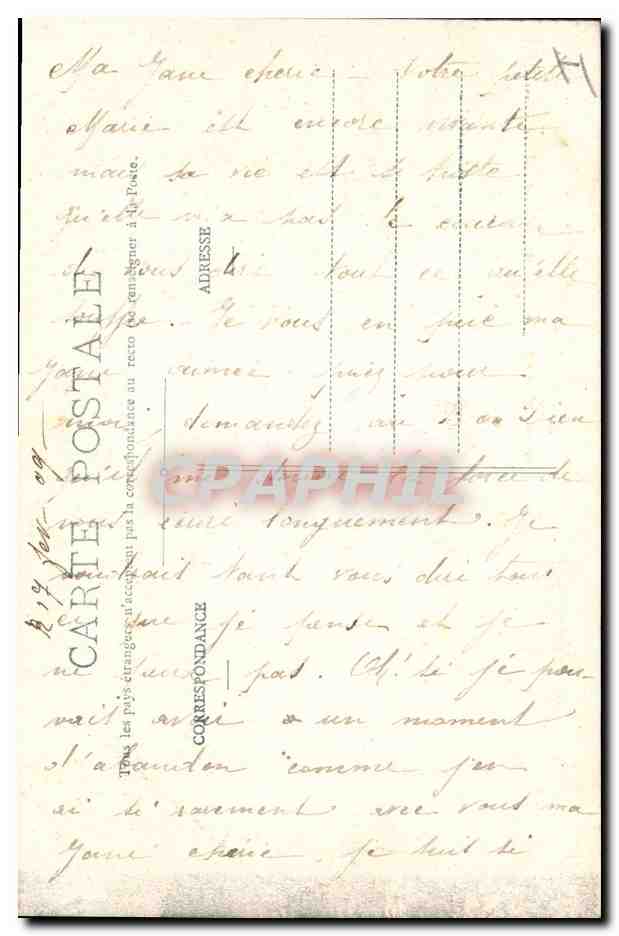 Ma Jane cherie - Votre petite
Marie est encore vivante
mais sa vie est si triste
qu'elle n'a pas le courage
de vous dire tout ce qu'elle
souffre. Je vous en prie ma
Jane aimée priez pour
moi, demandez au Bon Dieu
qu'il me donne la force de
vous écrire longuement. Je
voudrais tant vous dire tout
ce que je pense et je
ne peux pas. Oh! si je pou-
vait avoir un moment
d'abandon comme j'en
ai si rarement avec vous ma
Jane cherie. Je suis si
R 17 fev - 09 -
CARTE POSTALE
Tous les pays étrangers n'acceptent pas la correspondance au recto (se renseigner à la Poste.
CORRESPONDANCE
ADRESSE
CAPHIL